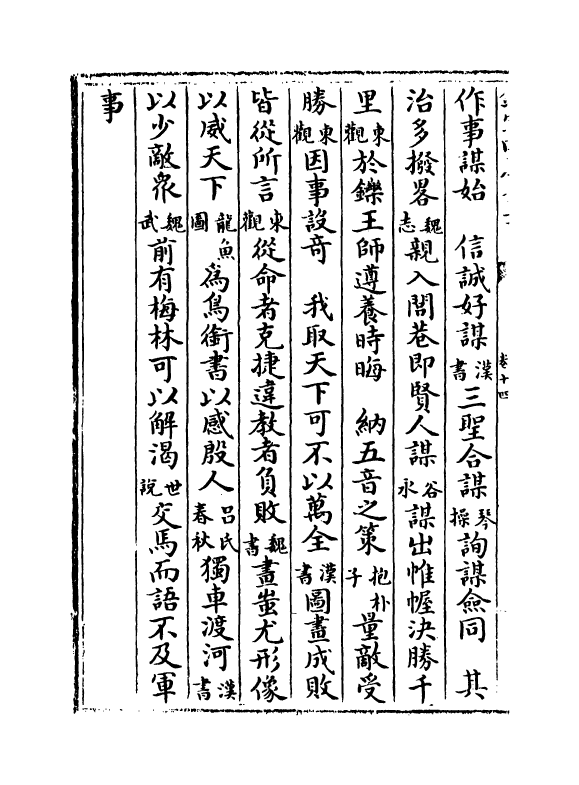 作事謀始　信誠好謀漢書三聖合謀琴操詢謀僉同　其
治多撥畧魏志親入閭巷即賢人謀谷永謀出帷幄決勝千
里東觀於鑠王師遵養時晦　納五音之策抱朴子量敵受
勝東觀因事設竒　我取天下可不以萬全漢書圖畫成敗
皆從所言東觀從命者克捷違教者負敗魏書畫蚩尤形像
以威天下龍魚圖為鳥銜書以感殷人吕氏春秋獨車渡河漢書
以少敵衆魏武前有梅林可以解渴世說交馬而語不及軍
事
卷十四